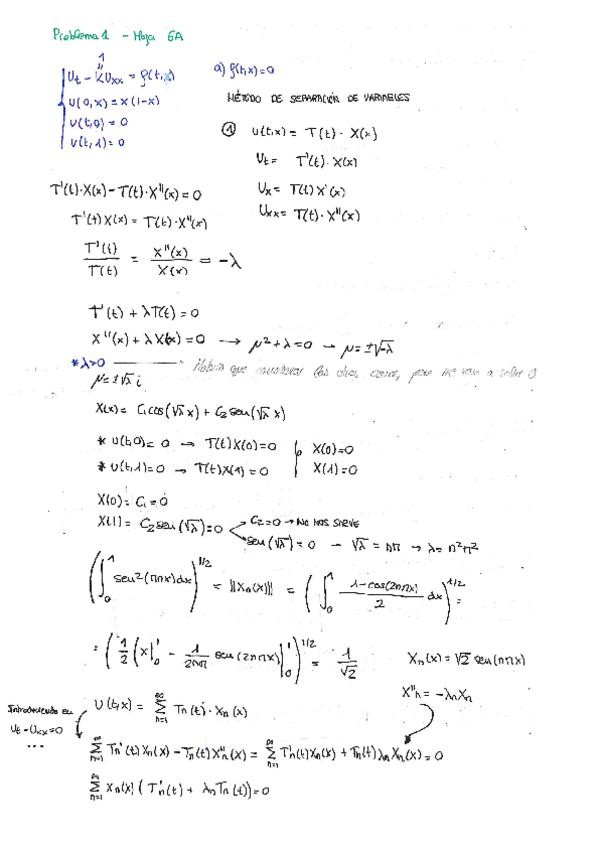 Problema 1 - Hoja 6A
1
"
Ut - KUxx = f(t,x)
a) f(t,x)=0
U(0,x) = x(1-x)
U(t,0) = 0
U(t,1) = 0
MÉTODO DE SEPARACIÓN DE VARIABLES
① u(t,x) = T(t) · X(x)
Ut = T'(t) · X(x)
Ux = T(t) X'(x)
Uxx = T(t) · X''(x)
T'(t)·X(x) - T(t)·X''(x) = 0
T'(t) X(x) = T(t)·X''(x)
T'(t)/T(t) = X''(x)/X(x) = -λ
T'(t) + λT(t) = 0
X''(x) + λX(x) = 0 → μ²+λ=0 → μ=±√-λ
*λ>0 Habría que los dos casos, pero va a salir 0
μ=±√λ i
X(x) = C₁cos(√λ x) + C₂sen(√λ x)
* u(t,0)=0 → T(t)X(0)=0 X(0)=0
* u(t,1)=0 → T(t)X(1)=0 X(1)=0
X(0) = C₁ = 0
X(1) = C₂sen(√λ)=0 C₂=0 → No NOS SIRVE
sen(√λ)=0 → √λ = nπ → λ=n²π²
(∫₀¹ sen²(πnx)dx)^1/2 = ||Xn(x)|| = (∫₀¹ 1-cos(2nπx)/2 dx)^1/2 =
= (1/2 (x|₀¹ - 1/2πn sen(2nπx)|₀¹))^1/2 = 1/√2
Xn(x) = √2 sen(nπx)
X''n = -λnXn
Introduciendo en
Ut-Uxx=0
...
U(t,x) = ∑n=1^∞ Tn(t)·Xn(x)
∑n=1^∞ Tn'(t)Xn(x) - Tn(t)X''n(x) = ∑n=1^∞ T'n(t)Xn(x) + Tn(t)λnXn(x) = 0
∑n=1^∞ Xn(x)(T'n(t) + λnTn(t)) = 0